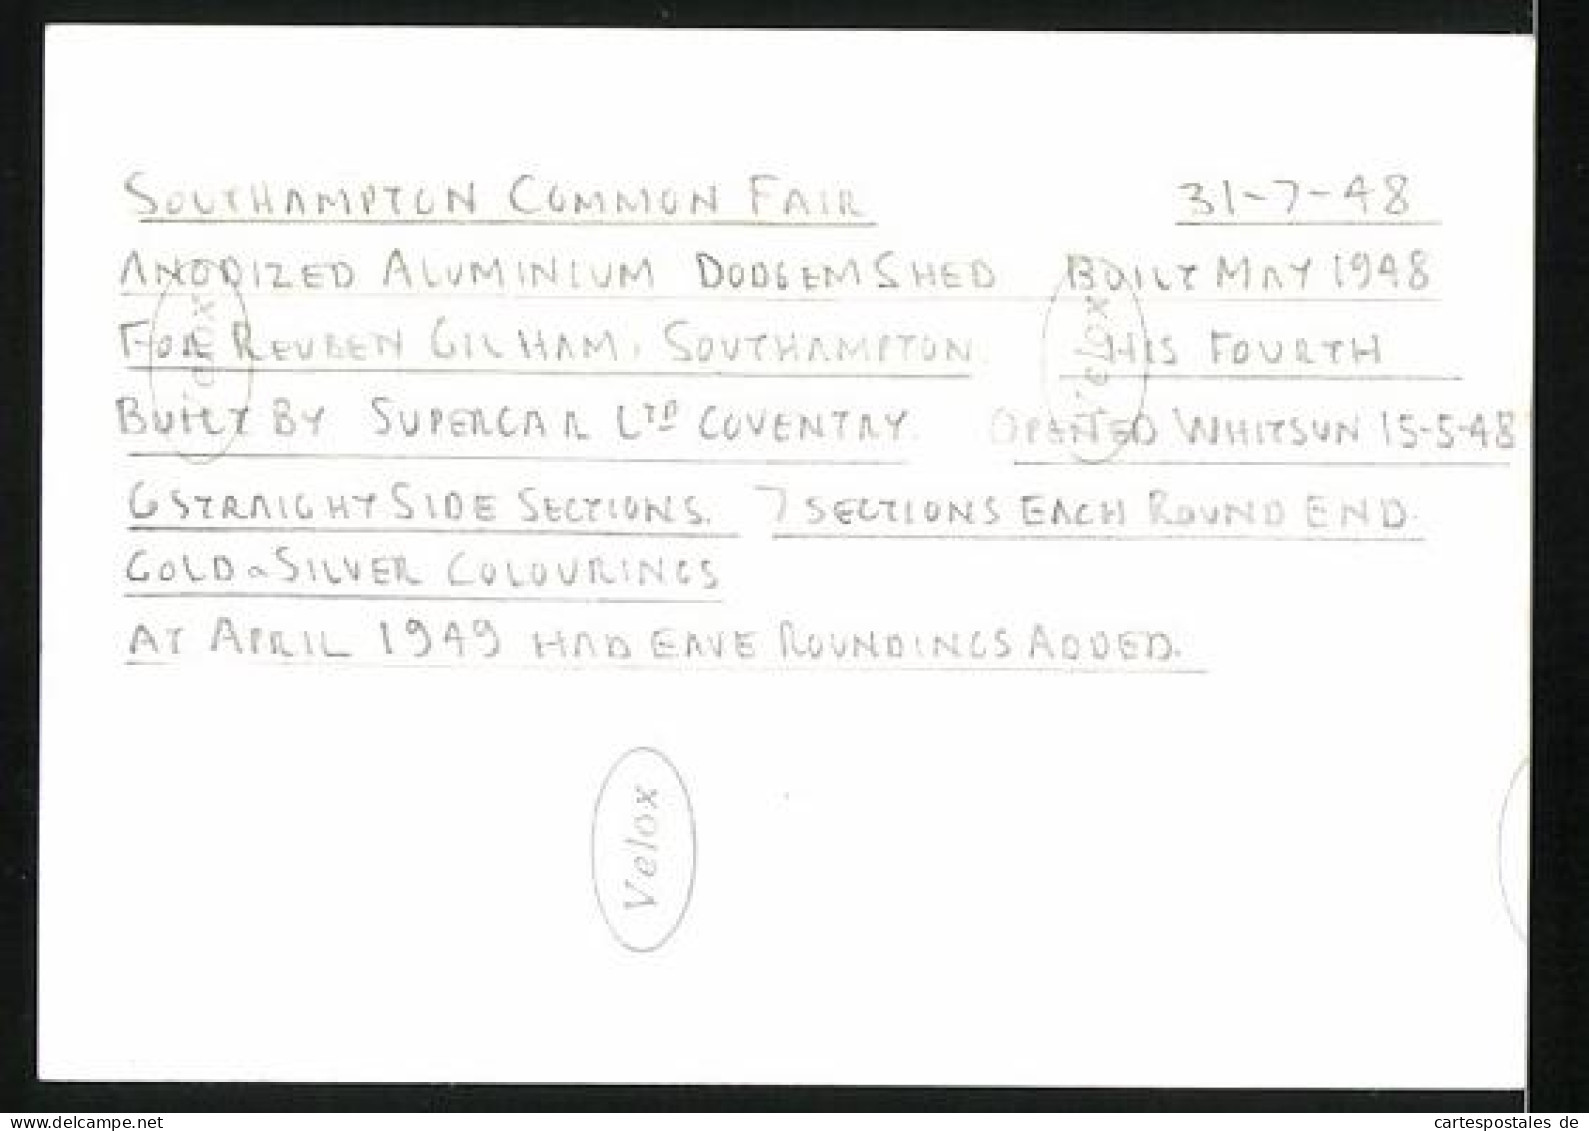 SOUTHAMPTON COMMON FAIR 31-7-48
ANODIZED ALUMINIUM DODGEM SHED BUILT MAY 1948
FOR REUBEN GILHAM. SOUTHAMPTON. HIS FOURTH
BUILT BY SUPERCAR LTD COVENTRY. OPENED WHITSUN 15-5-48
6 STRAIGHT SIDE SECTIONS. 7 SECTIONS EACH ROUND END.
GOLD & SILVER COLOURINGS
AT APRIL 1949 HAD EAVE ROUNDINGS ADDED.
Velox
Velox
Velox
www.delcampe.net
cartespostales de